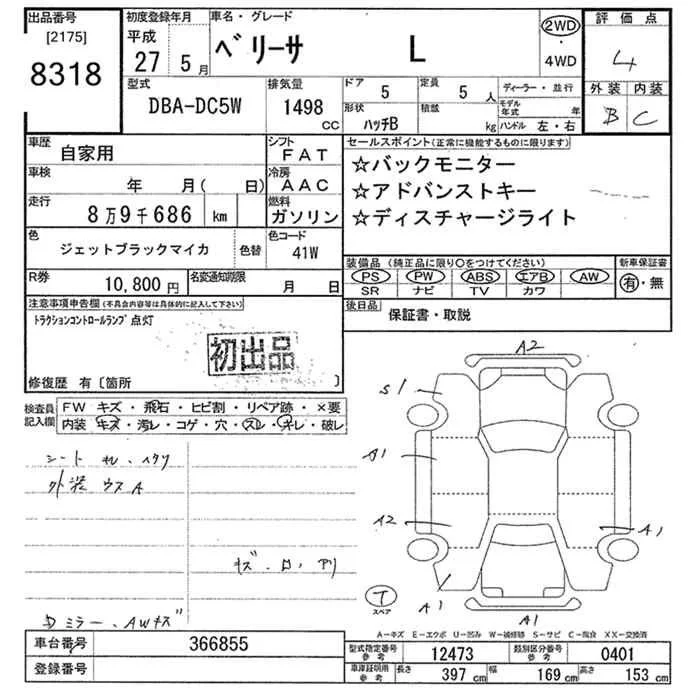 出品番号 初度登録年月 車名・グレード 評価点
[2175] 平成
8318 27 5月 ベリーサ L 2WD 4WD 4
型式 排気量 ドア 定員 ディーラー・並行 外装 内装
DBA-DC5W 1498 CC 5 5人 モデル年式 年 B C
形状 積載
ハッチB kg ハンドル 左・右
車歴 自家用 シフト FAT セールスポイント(正常に機能するものに限ります)
車検 年 月( 日) 冷房 AAC ☆バックモニター
☆アドバンストキー
走行 8万9千686 km 燃料 ガソリン ☆ディスチャージライト
色 ジェットブラックマイカ 色替 色コード 41W
装備品(純正品に限り○をつけてください) 新車保証書
PS PW ABS エアB AW 有・無
SR ナビ TV カワ
R券 10,800円 名変通知期限 月 日
後日品 保証書・取説
注意事項申告欄(不具合内容等は具体的に記入して下さい)
トラクションコントロールランプ点灯
初出品
修復歴 有〔箇所
検査員記入欄 FW キズ・飛石・ヒビ割・リペア跡・×要
内装 キズ・汚レ・コゲ・穴・スレ・キレ・破レ
シート
外装 ウスA
ミラー、AWキズ
A2
S1
A1
A2
A1
A1
A1
T
スペア
A-キズ E-エクボ U-凹み W-補修跡 S-サビ C-腐食 XX-交換済
車台番号 366855 型式指定番号 参考 12473 類別区分番号 参考 0401
登録番号 車庫証明用 参考 長さ 397 cm 幅 169 cm 高さ 153 cm